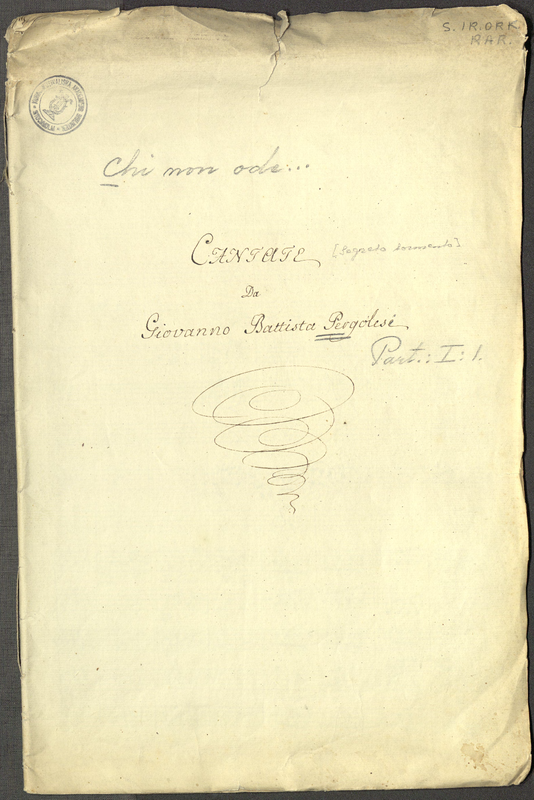 S. IR. ORK.
RAR.
Chi non ode...
CANTATE [Segreto tormento]
Da
Giovanno Battista Pergolesé
Part.: I: 1.